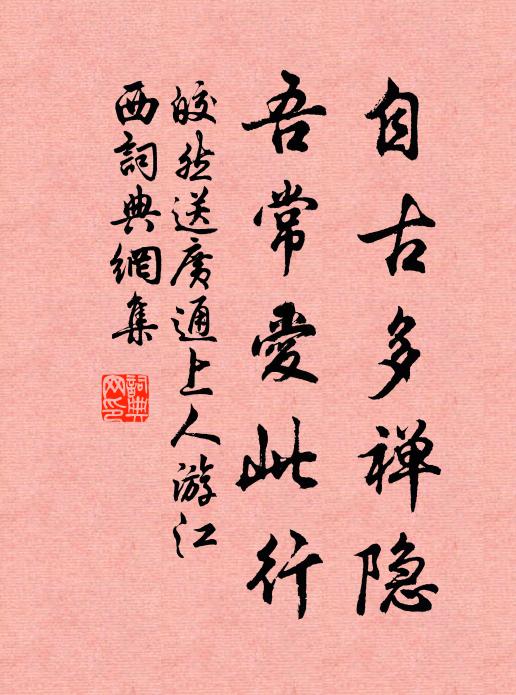 自古多禅隐
吾常愛此行
皎然送廣通上人游江
西詞典網集
詞典网印